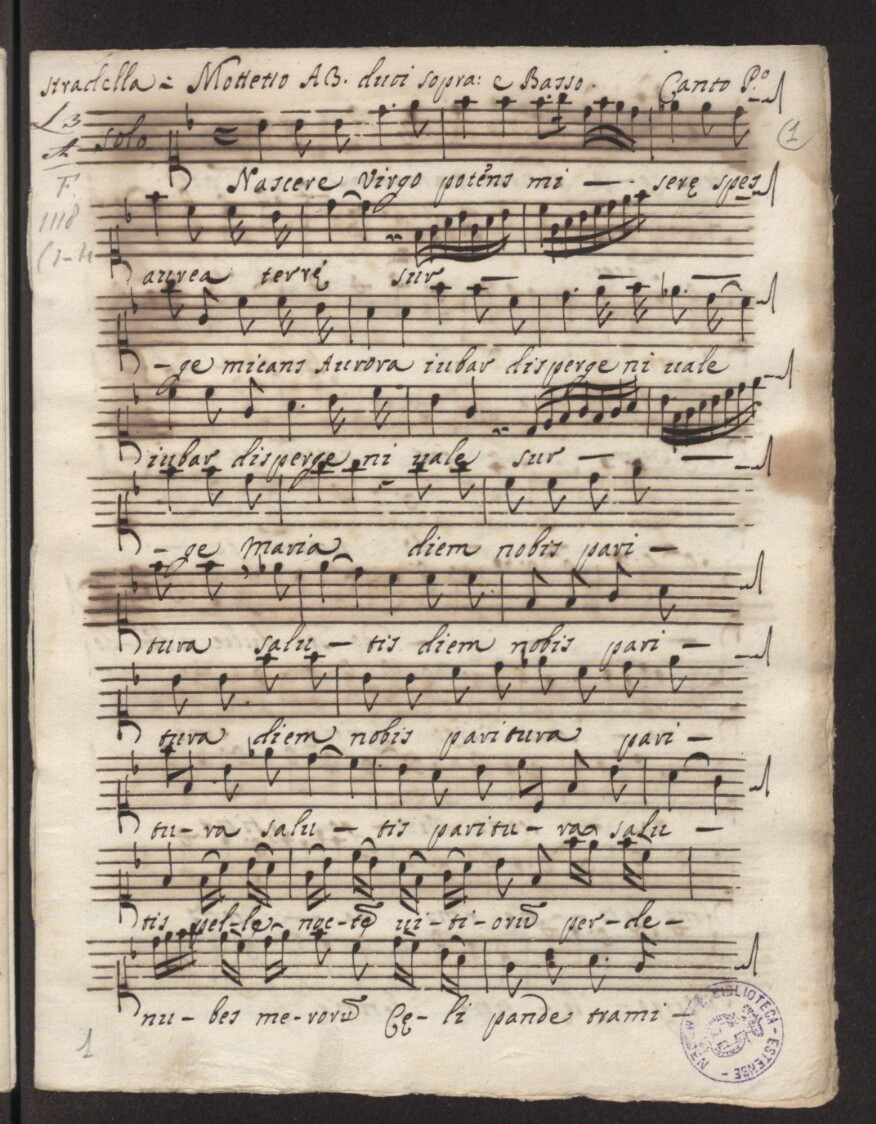 stradella = Mottetto A3. duoi sopra: e Basso. Canto P.º
A solo
(1
F.
1118
(1-4
Nascere Virgo potēns mi — serę spes
aurea terrę sur — —
-ge micans Aurora iubar disperge ni uale
iubar disperge ni uale sur — —
-ge Maria diem nobis pari —
tura salu — tis diem nobis pari —
tura diem nobis paritura pari —
tu- ra salu — tis paritu - ra salu —
tis pel-le noc-tē ui-ti-orū per-de-
nu- bes me-rorū Cę- li pande trami -
1
BIBLIOTECA - ESTENSE - MODENA